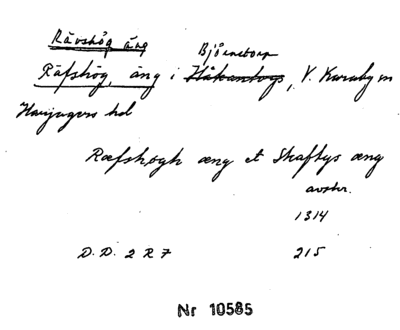 Rävshög äng
Björnstorp
Räfshög, äng i Håkantorps, V. Karaby sn
Harjagers hd
Ræfshøgh æng et Skaftys æng
avskr.
1314
D.D. 2 R 7 215
Nr 10585